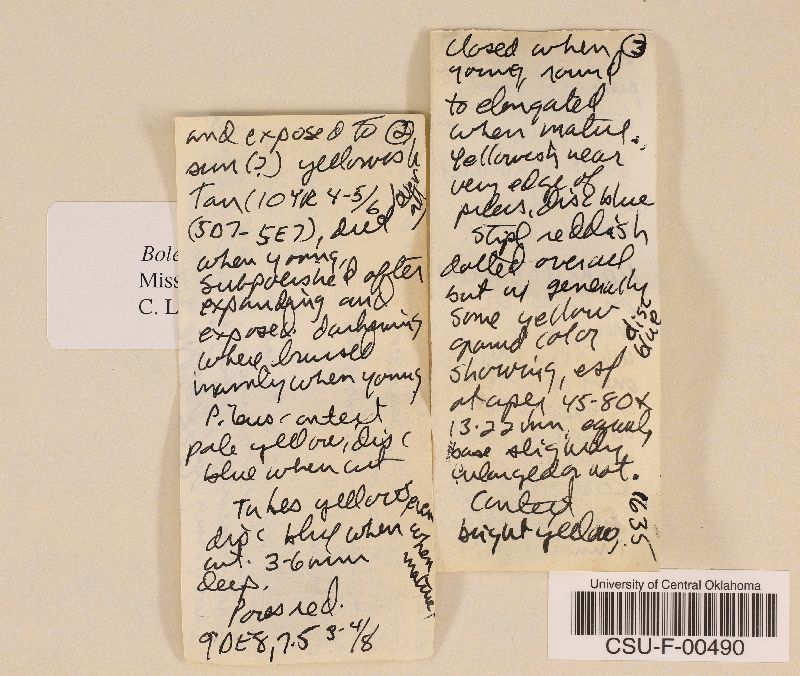 and exposed to ②
sun (?) yellowish
Tan (10YR 4-5/6)
(5D7-5E7), dull
when young,
subpolished after
expanding and
exposed. darkening
where bruised
mainly when young
Pileus context
pale yellow, disc
blue when cut
Tubes yellow even
disc blue when when
cut. 3-6mm mature
deep.
Pores red.
9DE8, 7.5 3-4/8
closed when ③
young, round
to elongated
when mature.
Yellowish near
very edge of
pileus, disc blue
Stipe reddish
dotted overall
but w generally
some yellow disc
ground color blue
showing, esp
at apex 45-80x
13-22mm, equal,
base slightly
enlarged or not.
Context
bright yellow,
1635
Bole
Miss
C. L
University of Central Oklahoma
CSU-F-00490